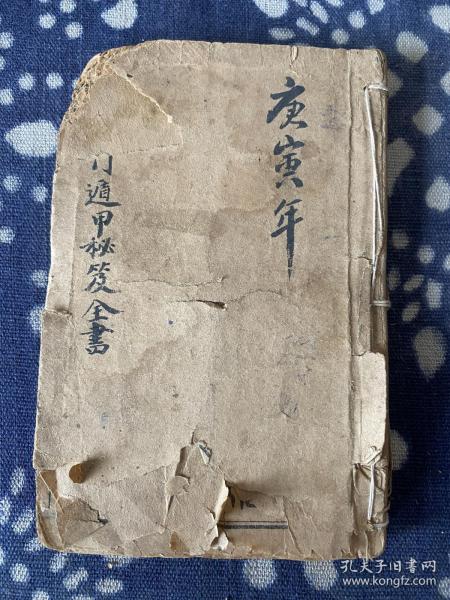 庚寅年
遁甲秘笈全書
孔夫子旧书网
www.kongfz.com